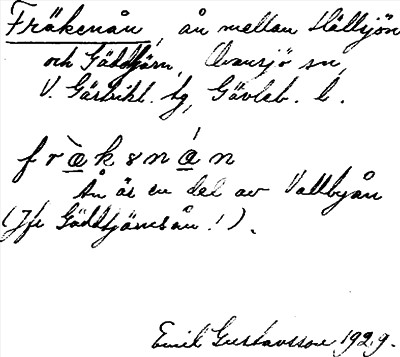 Fräkenån, ån mellan Hållsjön
och Gäddtjärn, Ovansjö sn,
V. Gästrikl. tg, Gävleb. l.
fràkənán
Ån är en del av Vallbyån
(Jfr Gäddtjärnsån!).
Emil Gustavsson 1929.